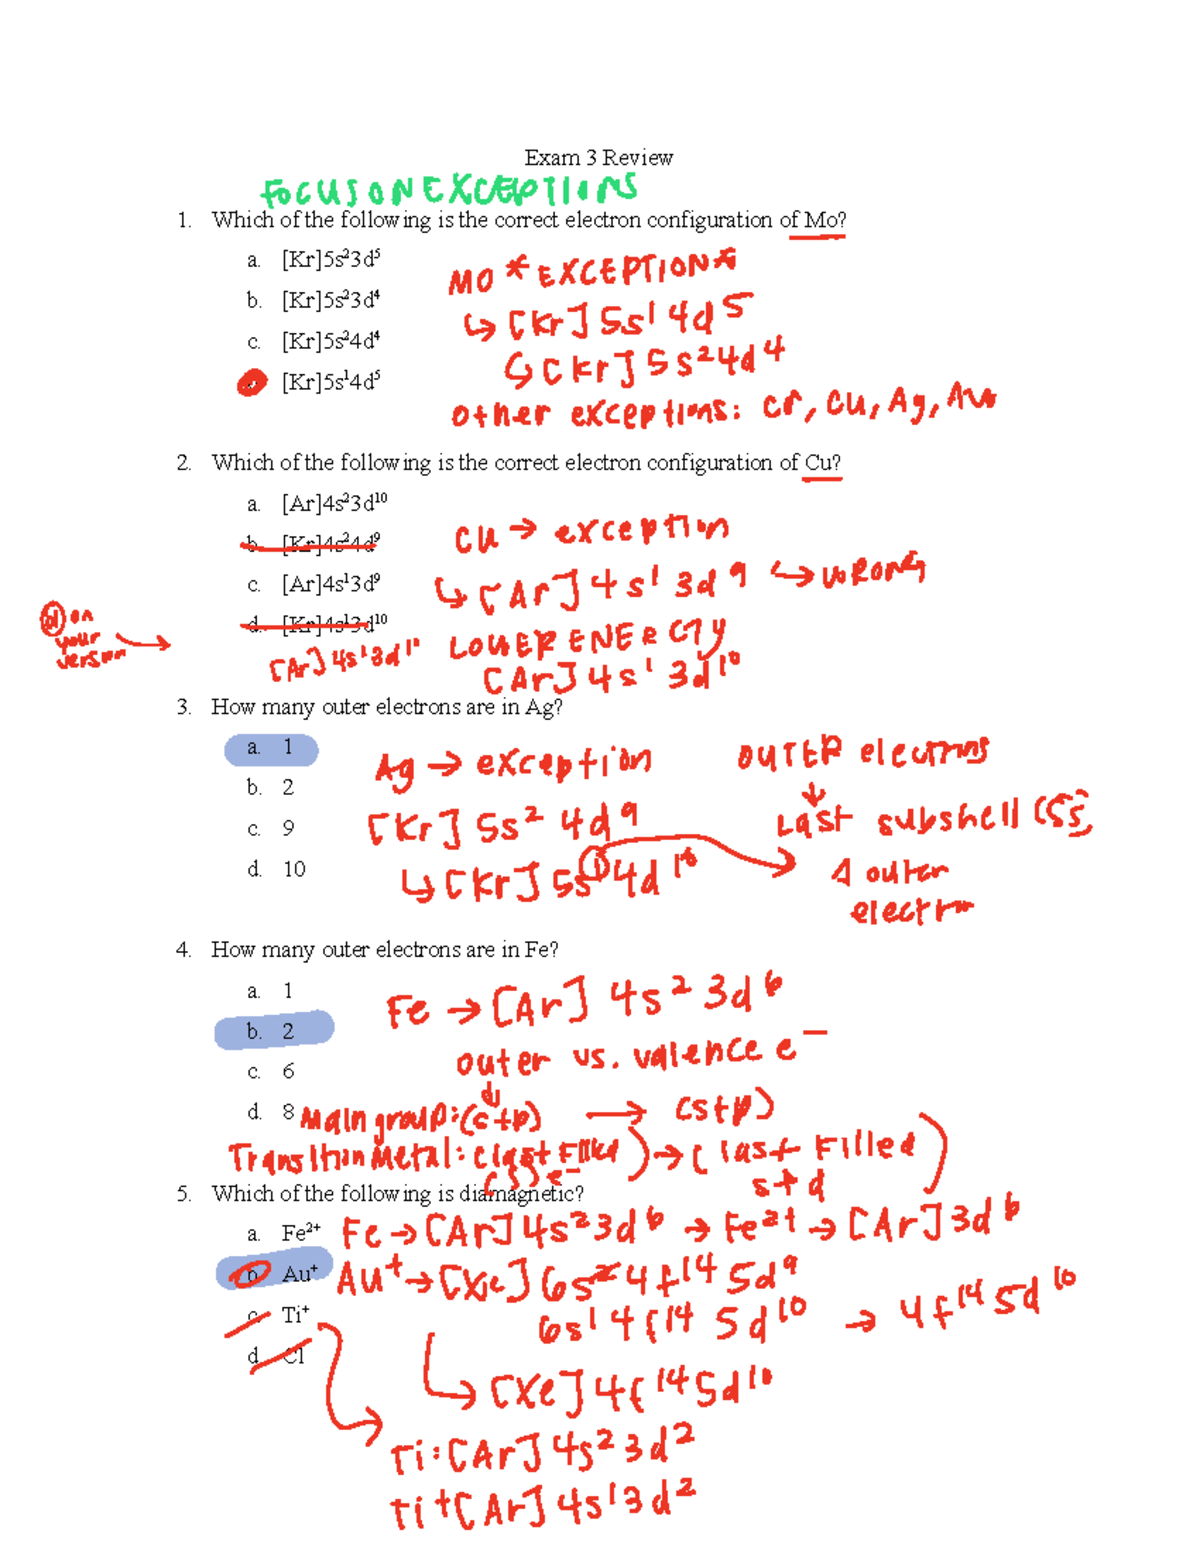 Exam 3 Review
FOCUS ON EXCEPTIONS
1. Which of the following is the correct electron configuration of Mo?
a. [Kr]5s²3d⁵
b. [Kr]5s²3d⁴
c. [Kr]5s²4d⁴
[Kr]5s¹4d⁵
MO *EXCEPTION*
↳ [Kr] 5s¹ 4d⁵
↳ [Kr] 5s²4d⁴
other exceptions: Cr, Cu, Ag, Au
2. Which of the following is the correct electron configuration of Cu?
a. [Ar]4s²3d¹⁰
b. [Kr]4s²4d⁹
c. [Ar]4s¹3d⁹
d. [Kr]4s¹3d¹⁰
[Ar] 4s¹3d¹⁰
d on
your
version
Cu → exception
↳ [Ar] 4s¹ 3d⁹ ↳ WRONG
LOWER ENERGY
[Ar] 4s¹ 3d¹⁰
3. How many outer electrons are in Ag?
a. 1
b. 2
c. 9
d. 10
Ag → exception
[Kr] 5s² 4d⁹
↳ [Kr] 5s¹ 4d¹⁰
OUTER electrons
↓
Last subshell (5s)
1 outer
electron
4. How many outer electrons are in Fe?
a. 1
b. 2
c. 6
d. 8
Fe → [Ar] 4s² 3d⁶
outer vs. valence e⁻
Main group: (s+p) → (s+p)
Transition Metal: (last Filled) → (last Filled
(s) e⁻ s+d)
5. Which of the following is diamagnetic?
a. Fe²⁺
b. Au⁺
c. Ti⁺
d. Cl
Fe → [Ar] 4s²3d⁶ → Fe²⁺ → [Ar] 3d⁶
Au⁺ → [Xe] 6s² 4f¹⁴ 5d⁹
6s¹ 4f¹⁴ 5d¹⁰ → 4f¹⁴ 5d¹⁰
↳ [Xe] 4f¹⁴ 5d¹⁰
Ti: [Ar] 4s² 3d²
Ti⁺ [Ar] 4s¹ 3d²